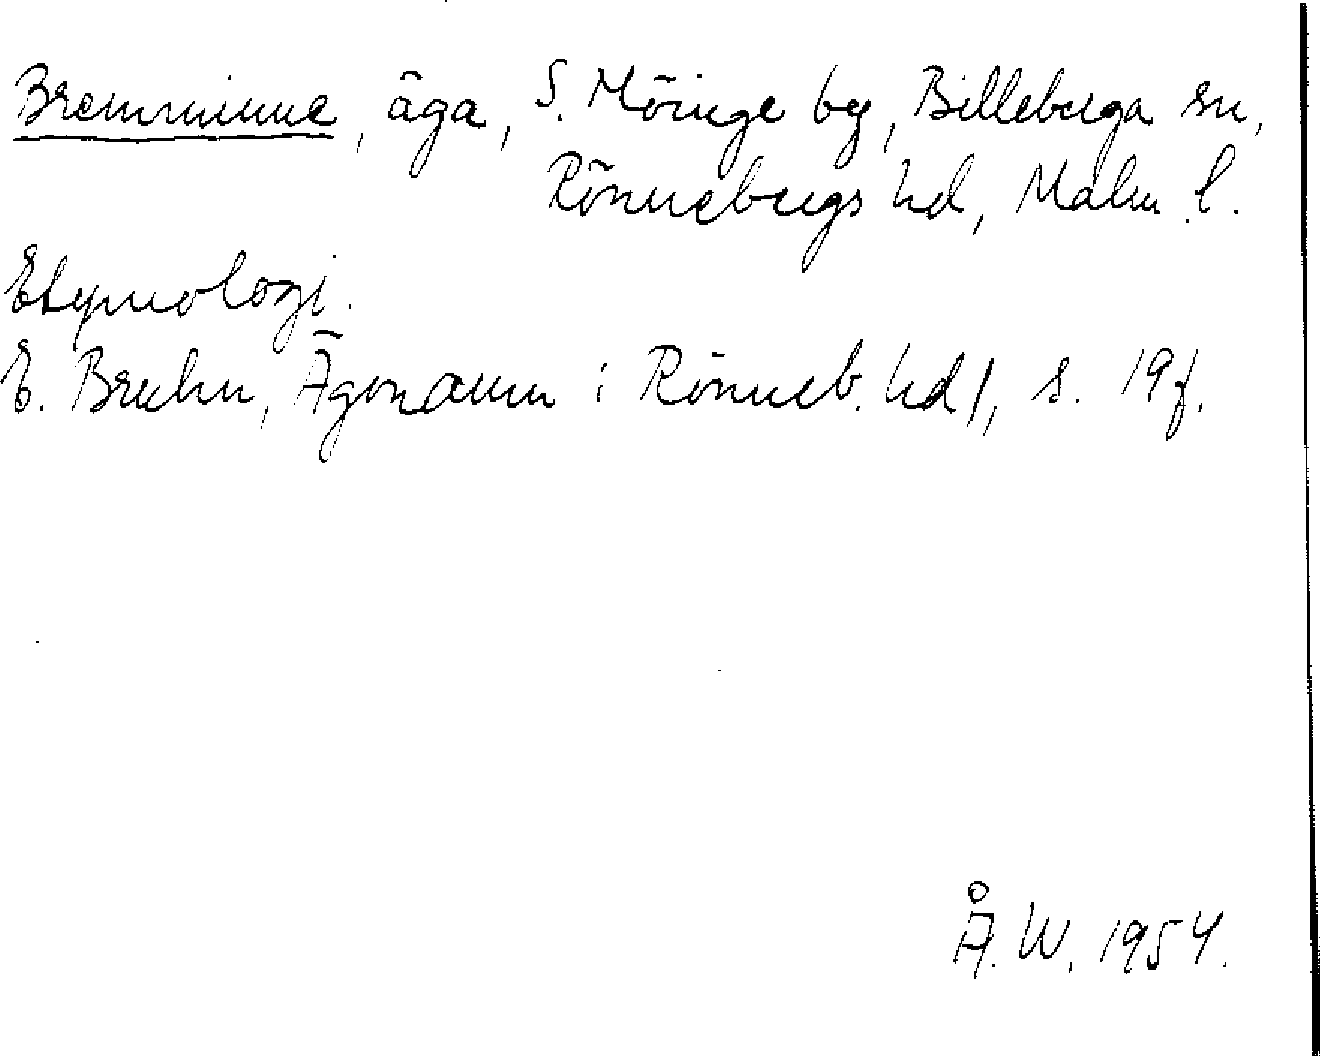 Bremminne, äga, S. Möinge by, Billeberga sn,
Rönnebergs hd, Malm. l.
Etymologi.
E. Bruhn, Ägonamn i Rönneb. hd 1, s. 19f.
Å. W. 1954.